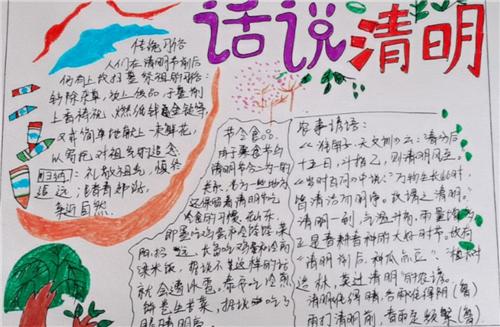 话说清明
传统习俗
人们在清明节前后
仍有上坟扫墓祭祖的习俗:
铲除杂草,放上供品,于墓前
上香祷祝,燃纸钱金锭等,
又或简单地献上一束鲜花,
以寄托对祖先的追念
归纳:礼敬祖先,慎终
追远,踏青郊游,
亲近自然
节令食品
由于寒食节与
清明节合二为一的
关系,
还保留着清明节吃
冷食的习惯,在山东,
即墨吃鸡蛋和冷饽饽,莱
阳,招远,长岛吃鸡蛋和冷高
粱米饭,据说不这样的话
就会遭冰雹。泰安吃冷煎
饼卷生苦菜,据说吃了
眼睛明亮
农事谚语:
十五日,斗指乙,则清明风至。
《岁时百问》中说:“万物生长此时,
皆清洁而明净。故谓之清明。”
清明一到,气温升高,雨量
正是春耕春种的大好时节。故有
“清明前后,种瓜点豆”、“植树
造林,莫过清明”的农谚。